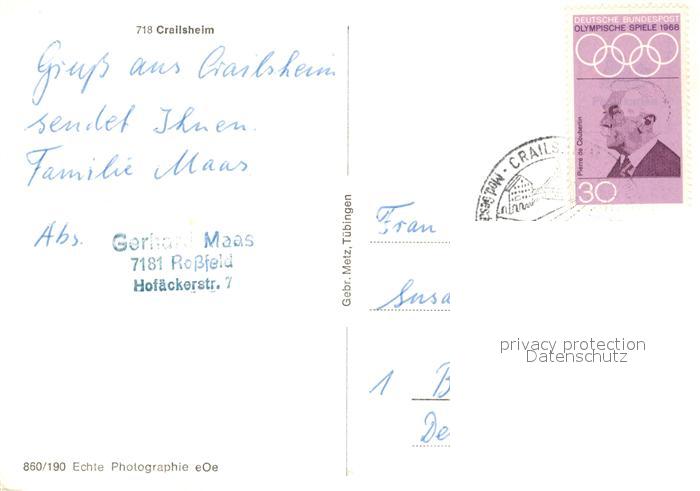 718 Crailsheim
Gruß aus Crailsheim
sendet Ihnen.
Familie Maas
Abs.
Gerhard Maas
7181 Roßfeld
Hofäckerstr. 7
860/190 Echte Photographie eOe
Gebr. Metz, Tübingen
DEUTSCHE BUNDESPOST
OLYMPISCHE SPIELE 1968
Pierre de Coubertin
30
CRAILS
Frau
Susa
1 B
De
privacy protection
Datenschutz